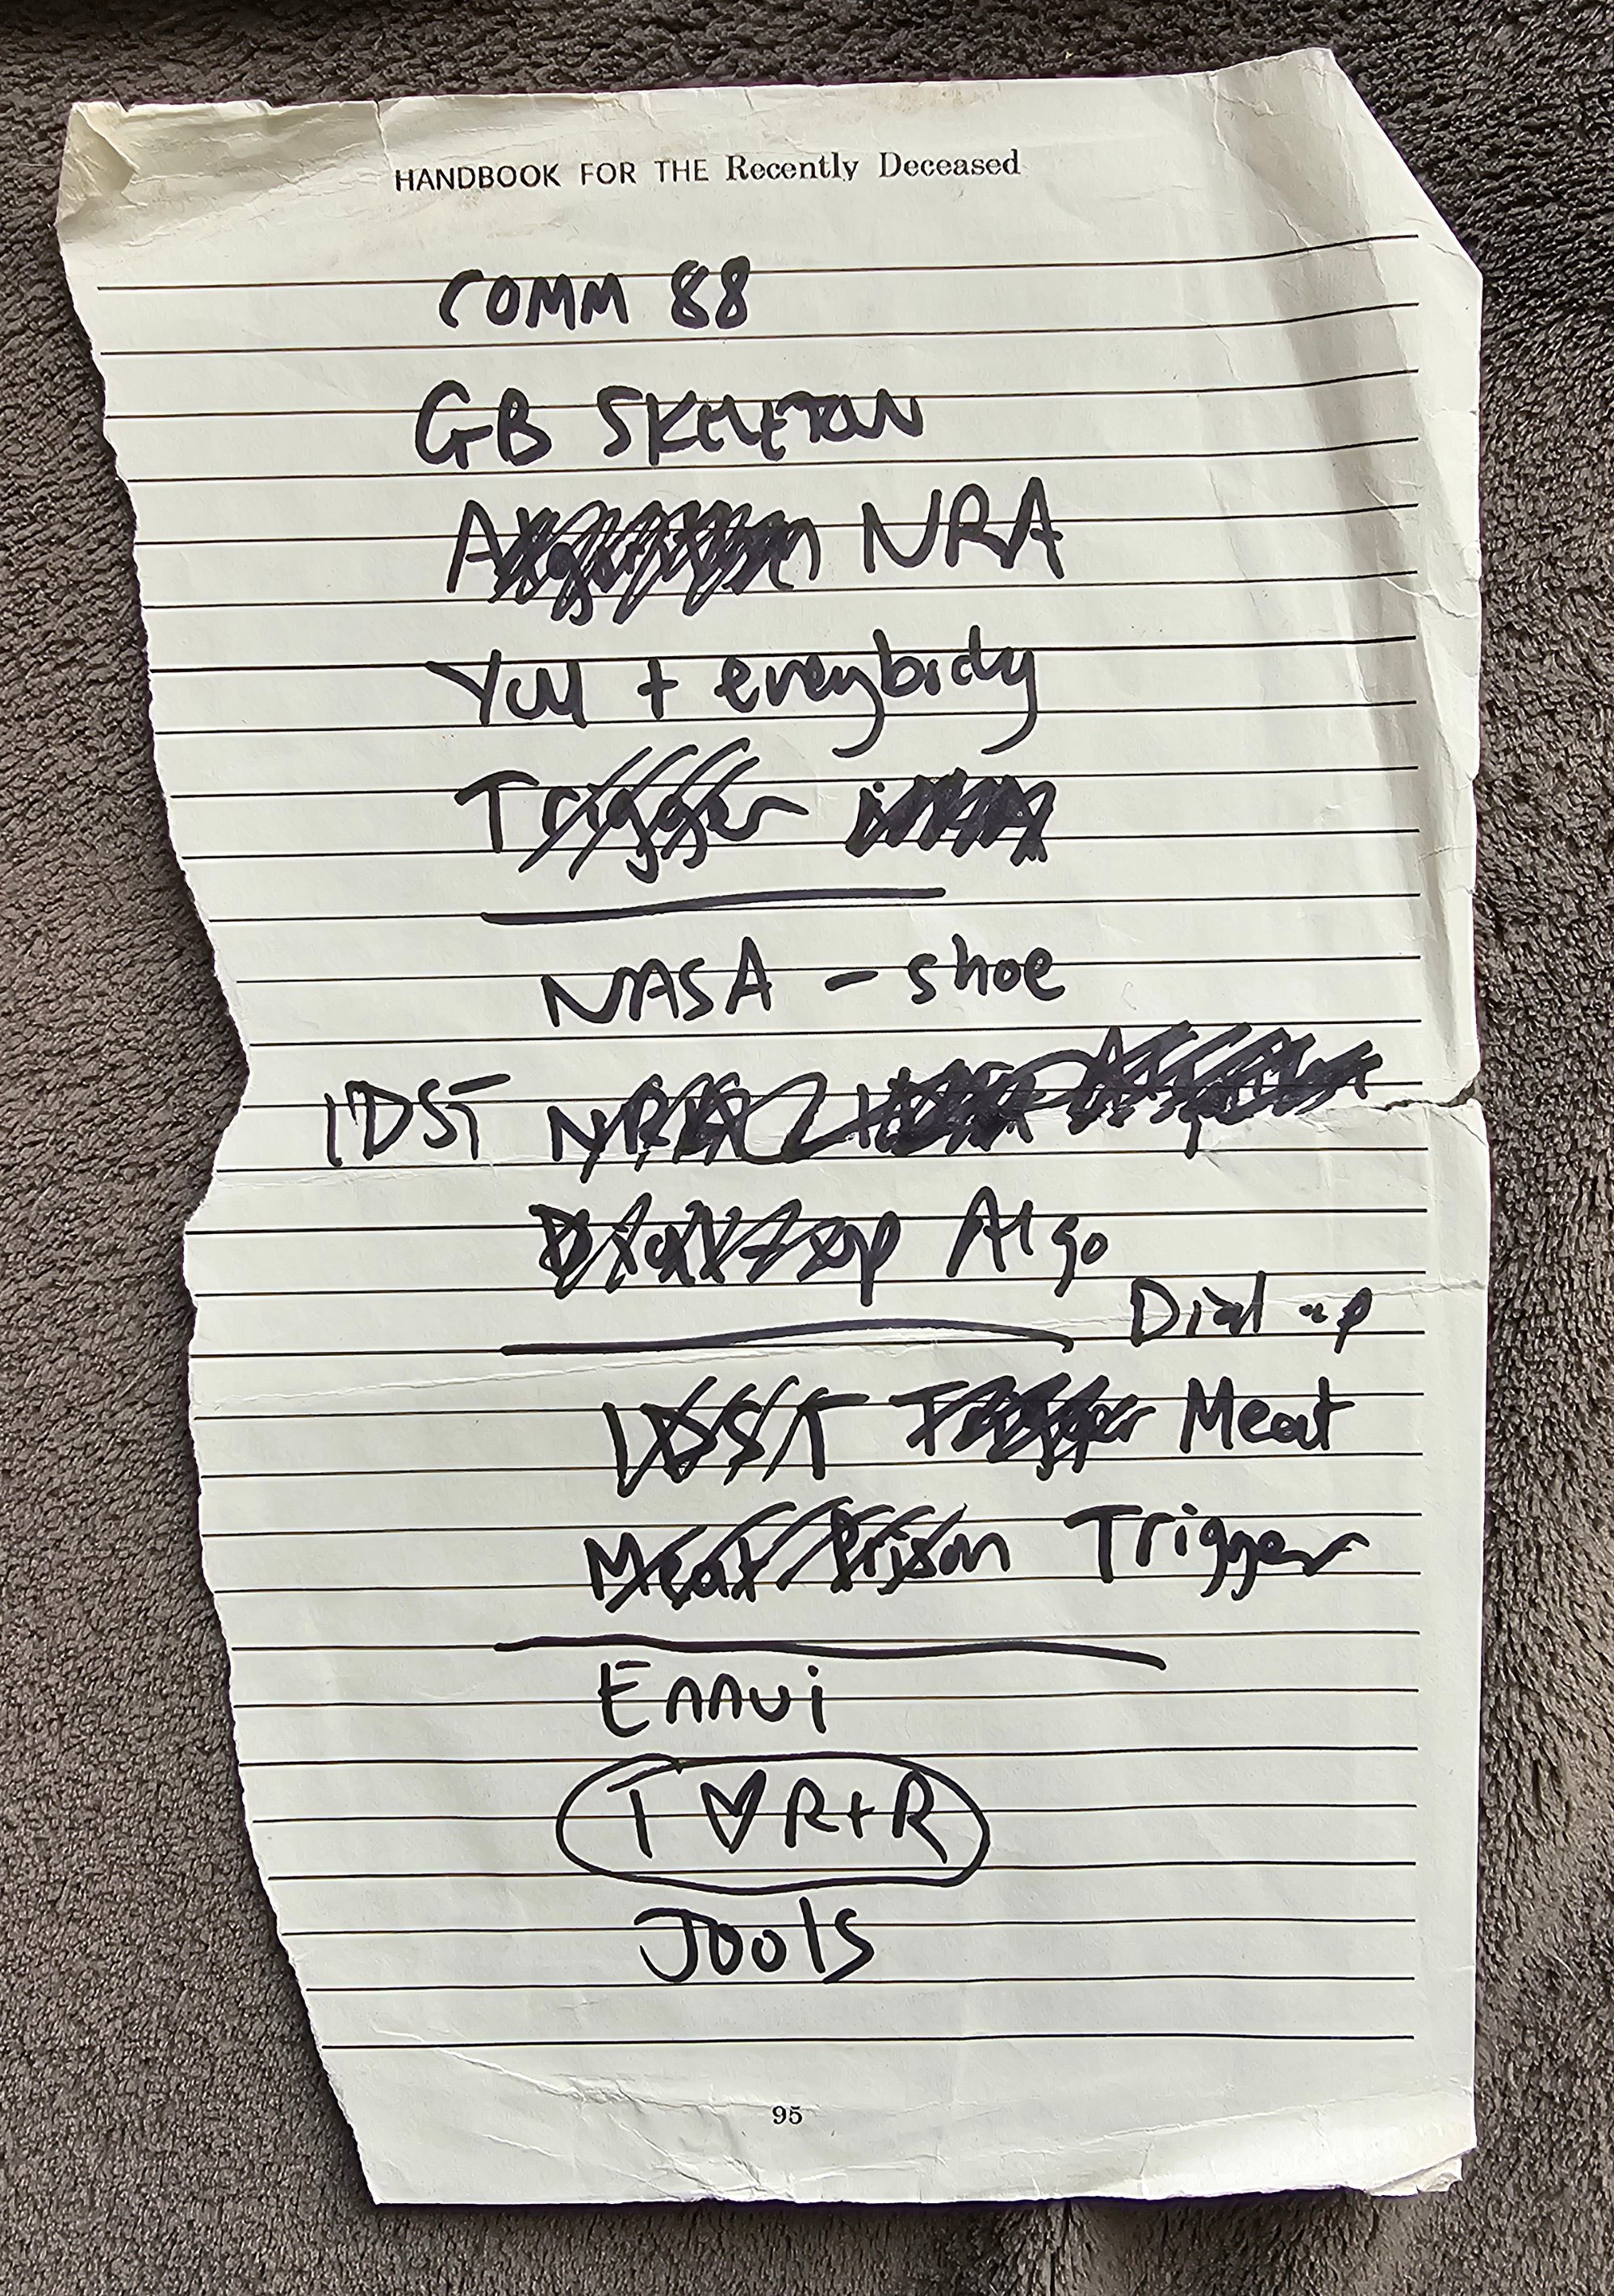 HANDBOOK FOR THE Recently Deceased
COMM 88
GB SKELETON
NRA
You + everybody
Trigger
NASA - shoe
IDST NRA
Algo
Dial-up
IDST Trigger Meat
Meat Prison Trigger
Ennui
I ♥ R+R
Jools
95